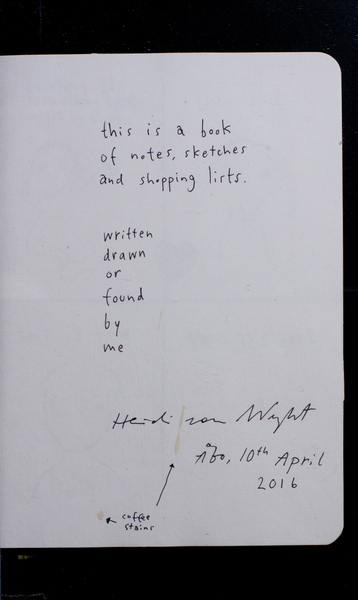 this is a book
of notes, sketches
and shopping lists.
written
drawn
or
found
by
me
Heidi von Wright
Åbo, 10th April
2016
coffee
stains